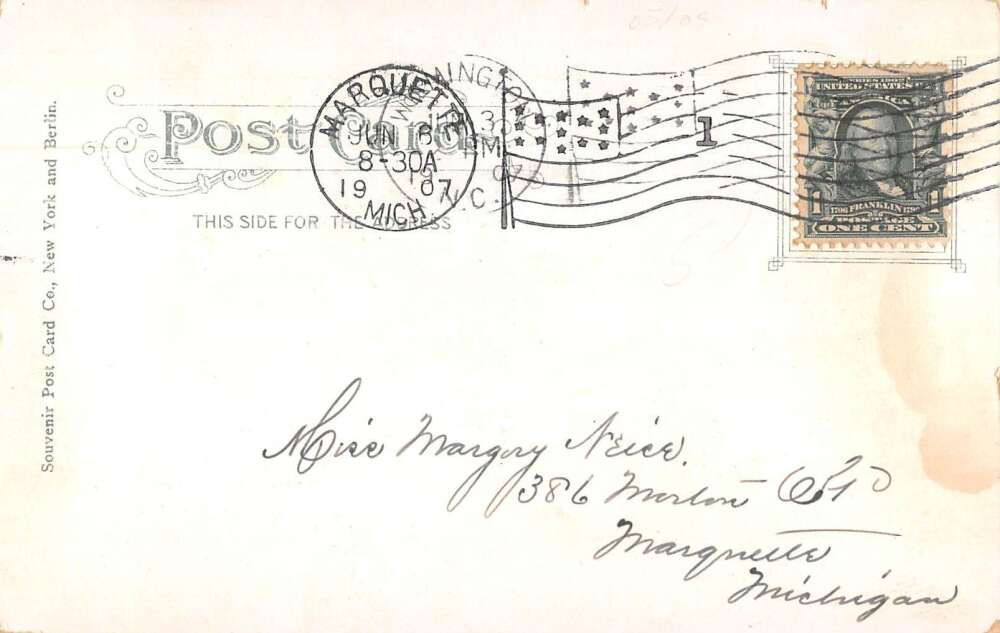 05/08
Post Card
THIS SIDE FOR THE ADDRESS
Souvenir Post Card Co., New York and Berlin.
MARQUETTE
JUN 8
8-30A
1907
MICH.
3
PM
N.C.
1
SERIES 1902
UNITED STATES OF AMERICA
1706 FRANKLIN 1790
1 1
POSTAGE
ONE CENT
Miss Margory Neice.
386 Morton St
Marquette
Michigan